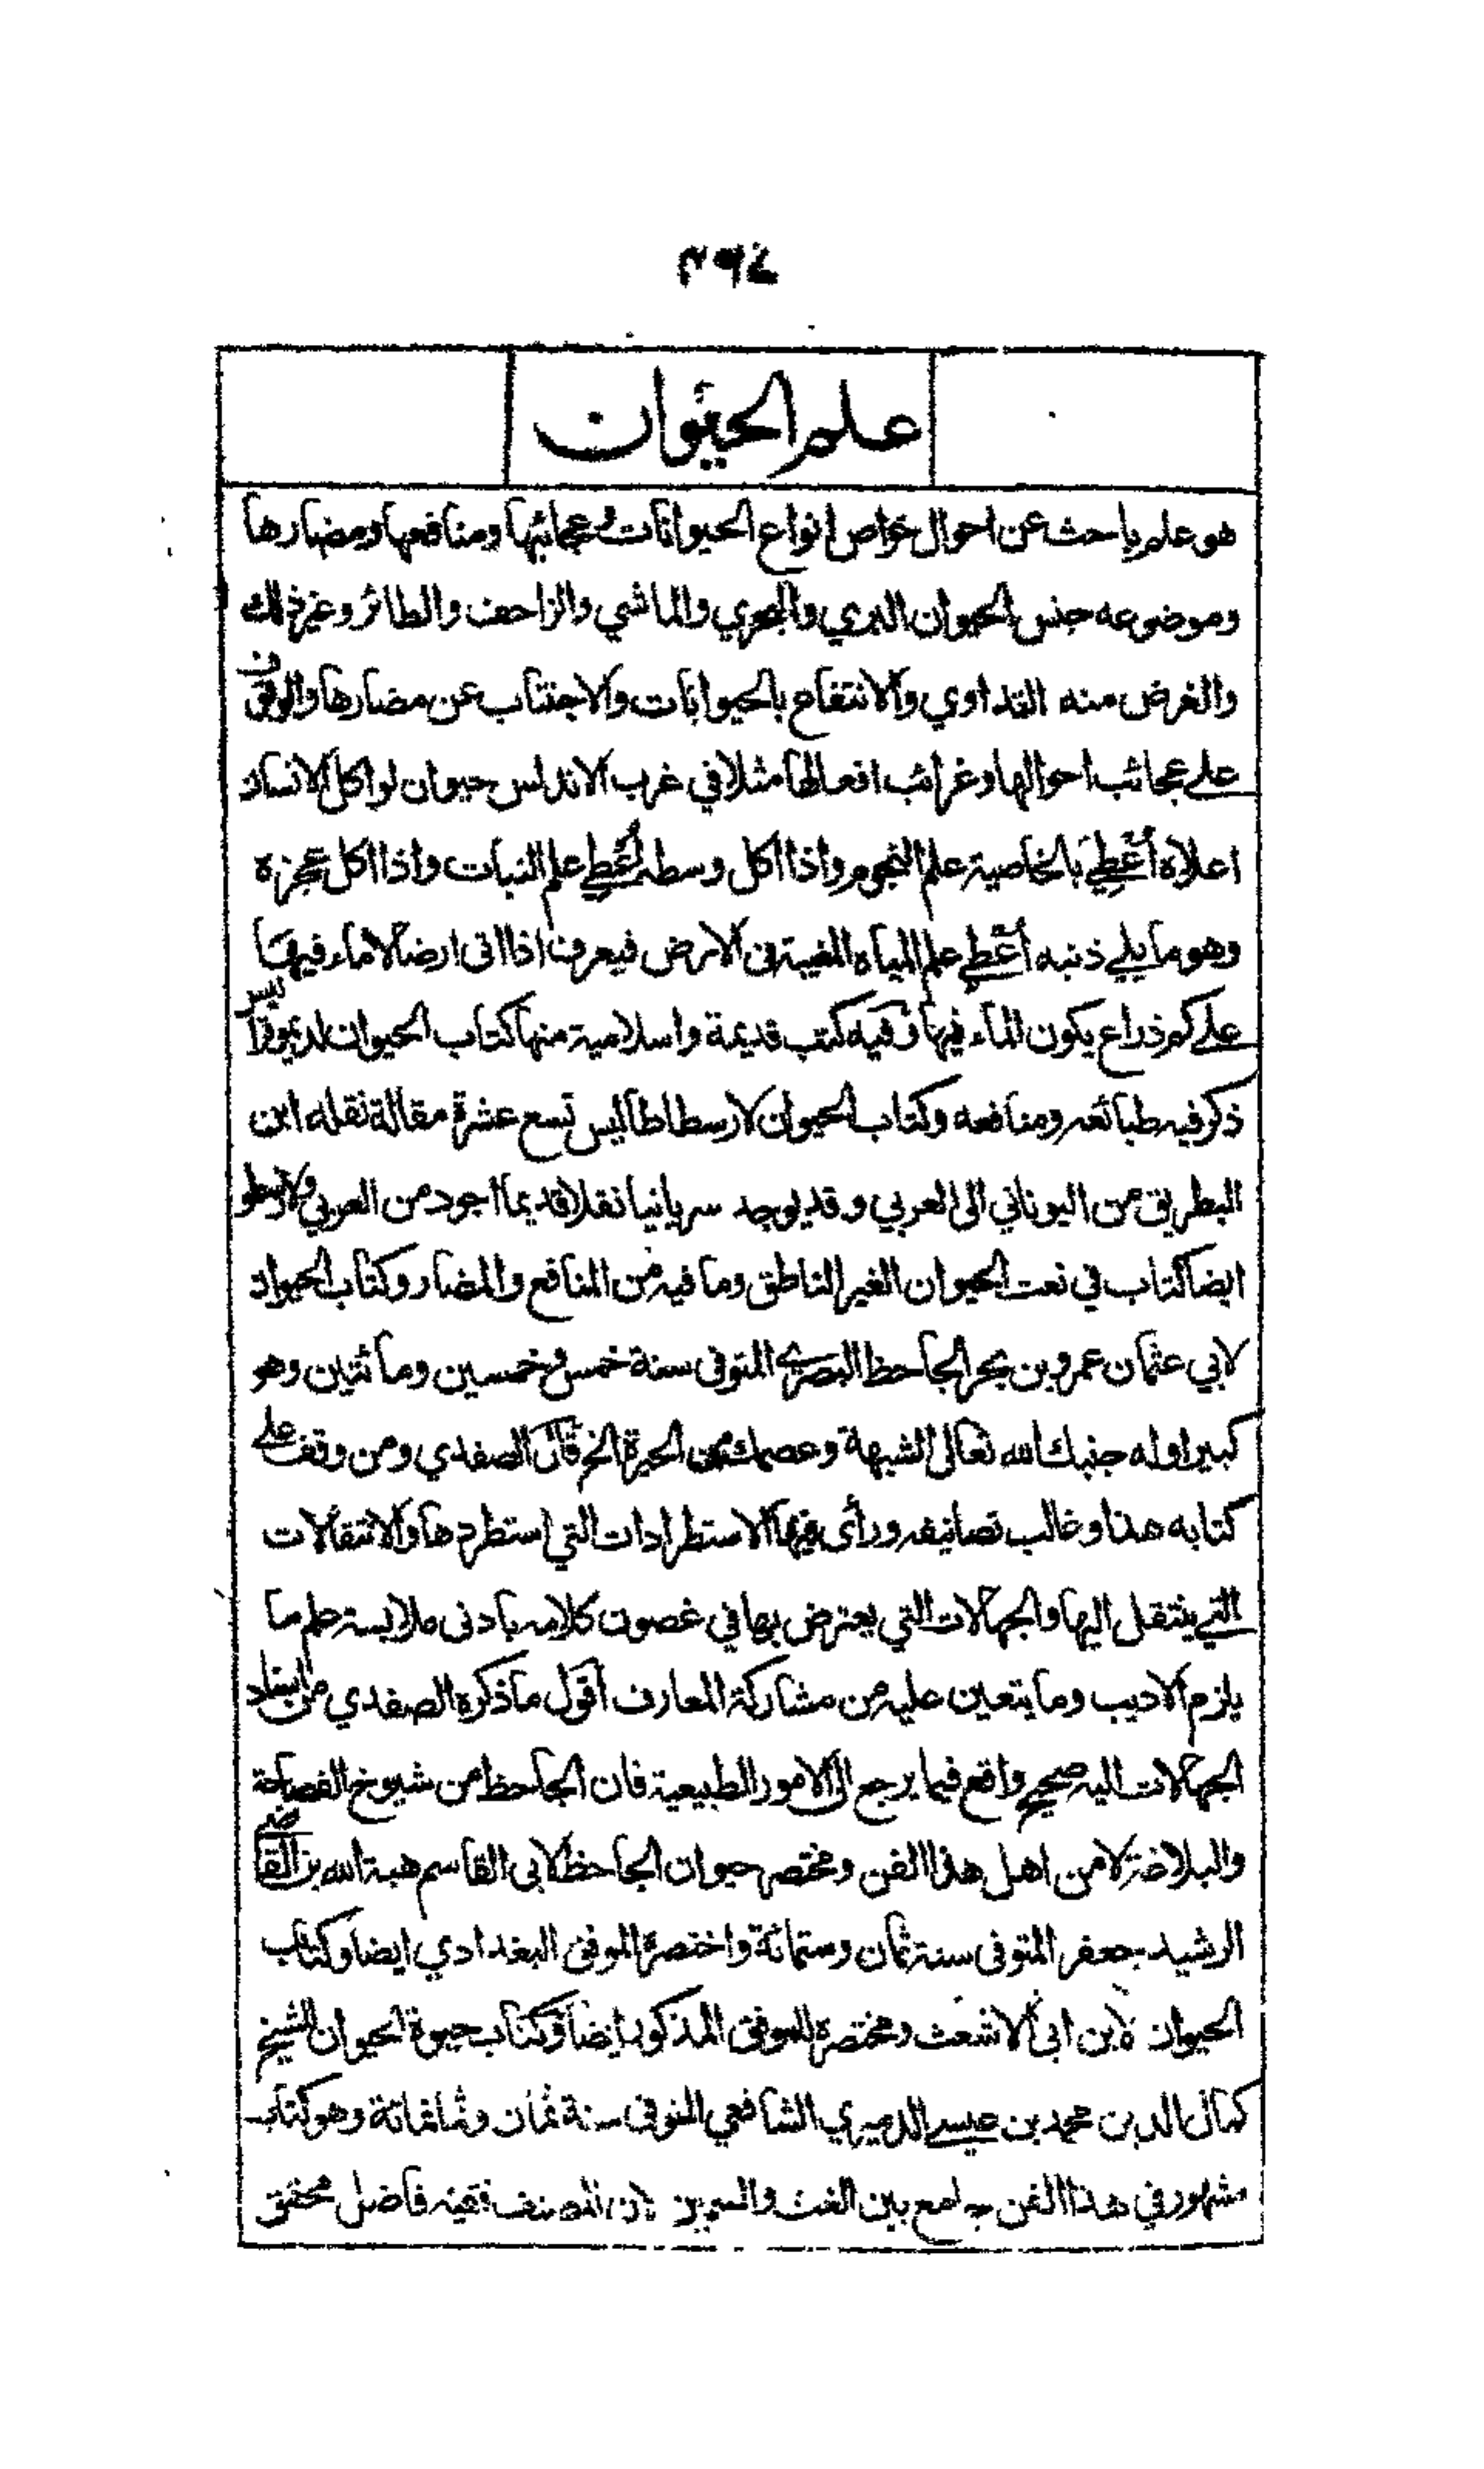 ٣٩٤
علم الحيوان
هو علم باحث عن احوال خواص انواع الحيوانات وعجائبها ومنافعها ومضارها
وموضوعه جنس الحيوان البري والبحري والماشي والزاحف والطائر وغير ذلك
والغرض منه التداوي والانتفاع بالحيوانات والاجتناب عن مضارها والوقوف
على عجائب احوالها وغرائب افعالها مثلا في غرب الاندلس حيوان لو اكل الانسان
اعلاه أعطي بالخاصية علم النجوم واذا اكل وسطه أعطي علم النبات واذا اكل عجزه
وهو ما يلي ذنبه أعطي علم المياه المغيبة في الارض فيعرف اذا اتى ارضا لا ماء فيها
على كم ذراع يكون الماء فيها وفيه كتب قديمة واسلامية منها كتاب الحيوان لديموقراطيس
ذكر فيه طبائعه ومنافعه وكتاب الحيوان لارسطاطاليس تسع عشرة مقالة نقله ابن
البطريق من اليوناني الى العربي وقد يوجد سريانيا نقلا قديما اجود من العربي ولارسطو
ايضا كتاب في نعت الحيوان الغير الناطق وما فيه من المنافع والمضار وكتاب الحيوان
لابي عثمان عمرو بن بحر الجاحظ البصري المتوفى سنة خمس وخمسين ومائتين وهو
كبير اوله جنبك الله تعالى الشبهة وعصمك من الحيرة الخ قال الصفدي ومن وقف على
كتابه هذا وغالب تصانيفه ورأى فيها الاستطرادات التي استطردها والانتقالات
التي ينتقل اليها والجهالات التي يعترض بها في غصون كلامه بادنى ملابسة علم ما
يلزم الاديب وما يتعين عليه من مشاركة المعارف اقول ما ذكره الصفدي من اسناد
الجهالات اليه صحيح واقع فيما يرجع الى الامور الطبيعية فان الجاحظ من شيوخ الفصاحة
والبلاغة لا من اهل هذا الفن ومختصر حيوان الجاحظ لابي القاسم هبة الله بن القاضي
الرشيد جعفر المتوفى سنة ثمان وستمائة واختصره الموفق البغدادي ايضا وكتاب
الحيوان لابن ابي الاشعث ومختصره للموفق المذكور ايضا وكتاب حيوة الحيوان للشيخ
كمال الدين محمد بن عيسى الدميري الشافعي المتوفى سنة ثمان وثمانمائة وهو كتاب
مشهور في هذا الفن جامع بين الغث والسمين لان المصنف فقيه فاضل محقق